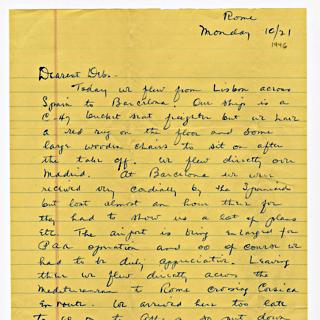 Rome
Monday 10/21
1946
Dearest Deb.-
Today we flew from Lisbon across
Spain to Barcelona. Our ship is a
C-47 bucket seat freighter but we have
a red rug on the floor and some
large wooden chairs to sit on after
the take off. We flew directly over
Madrid. At Barcelona we were
received very cordially by the Spaniards
but lost almost an hour there for
they had to show us a lot of plans
etc. The airport is being enlarged for
PAA operation and so of course we
had to be duly appreciative. Leaving
there we flew directly across the
Mediterranean to Rome crossing Corsica
en route. We arrived here too late
to go on to Athens so put down